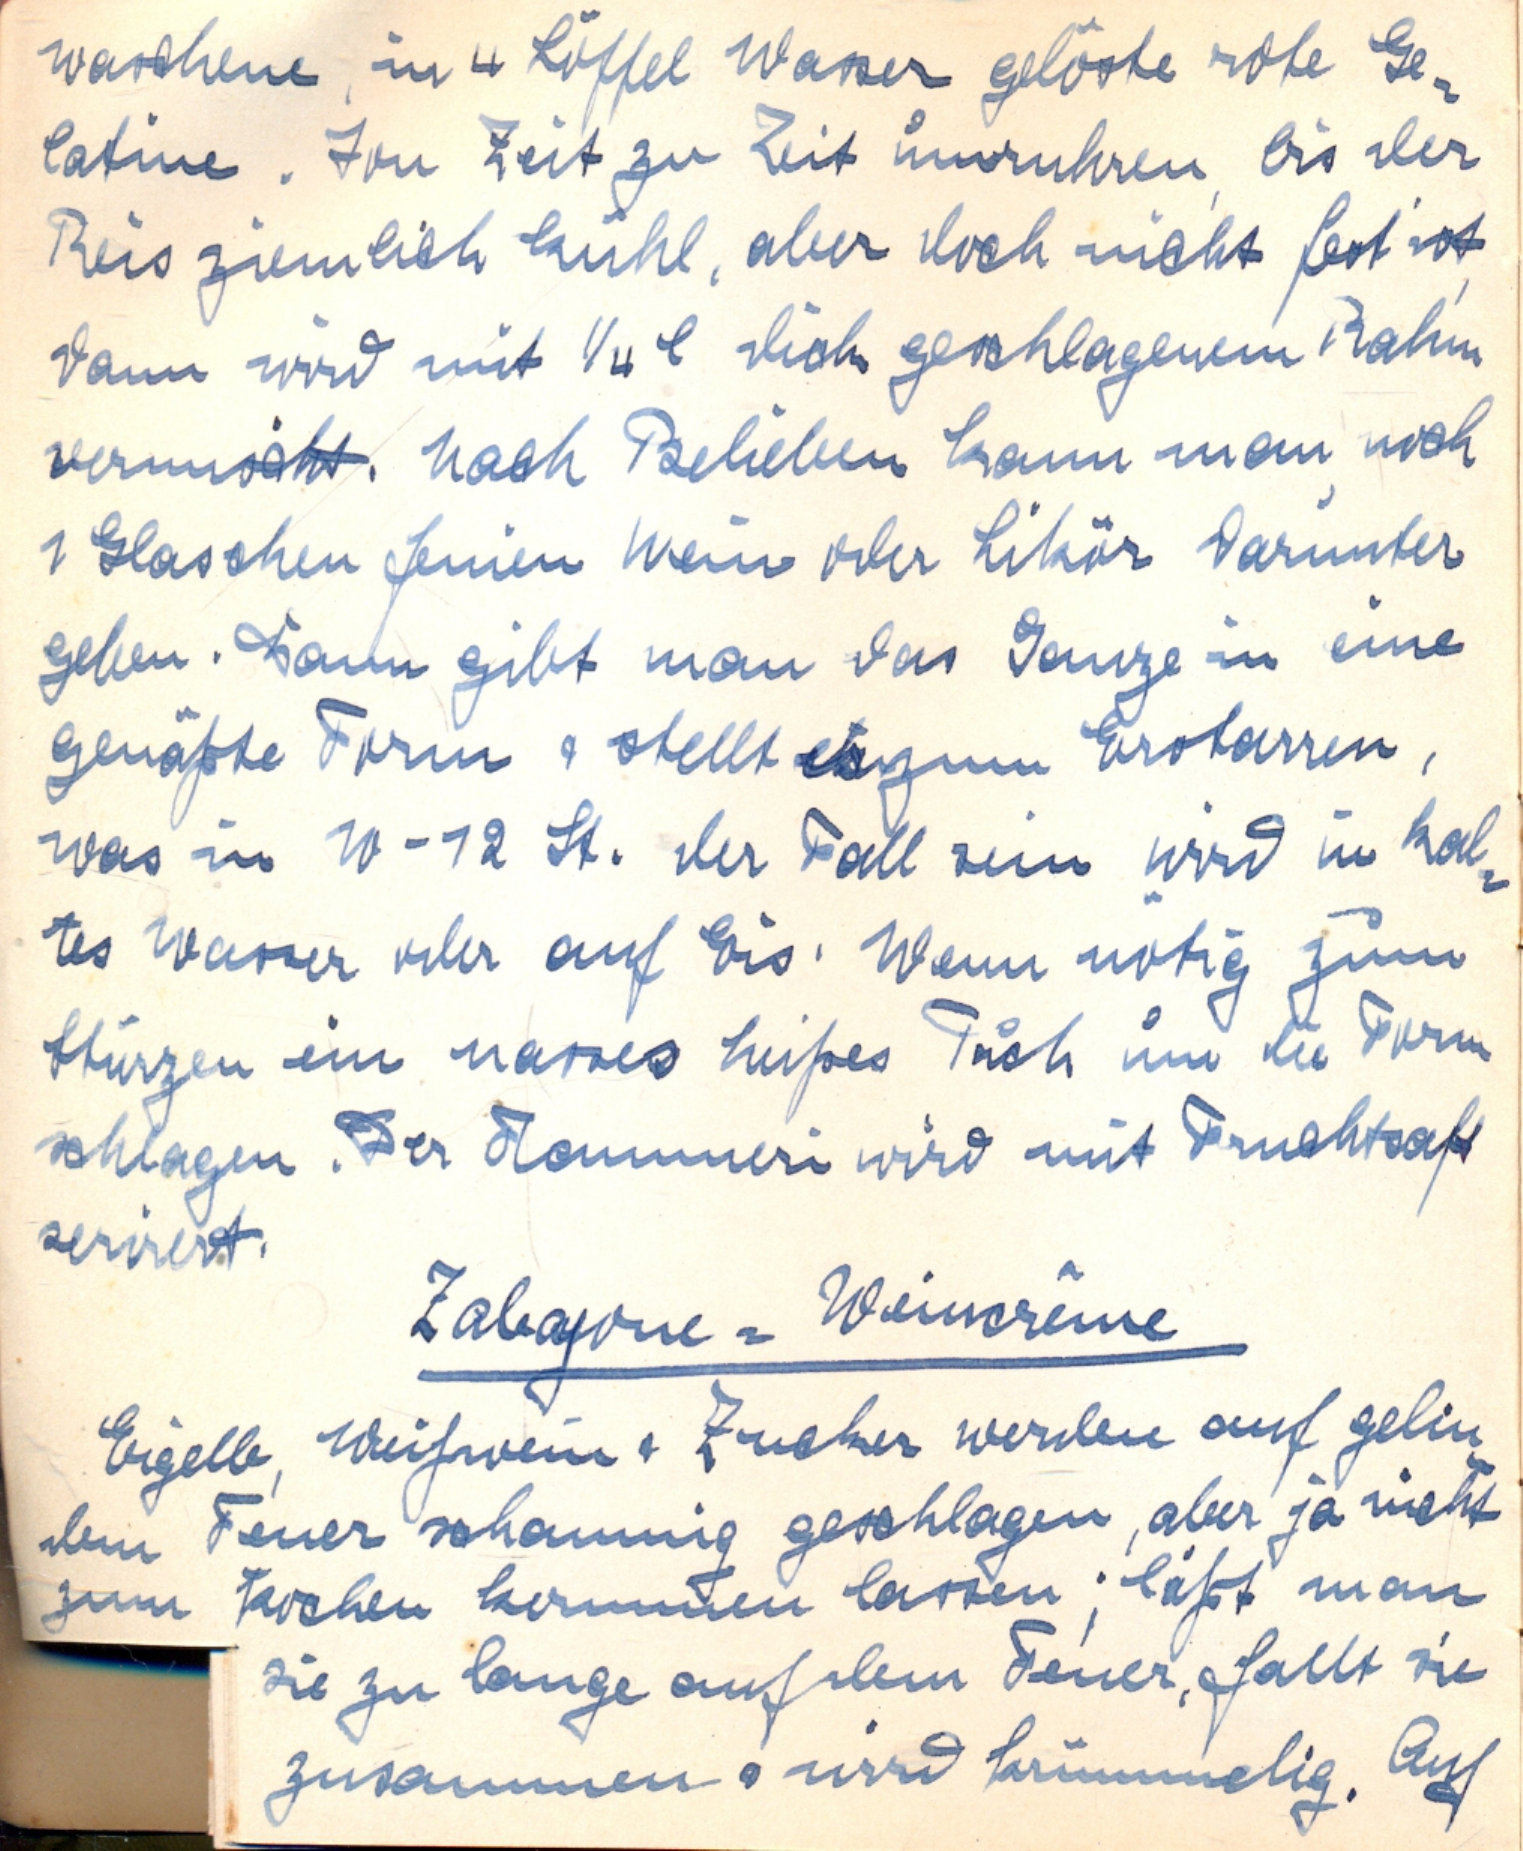 waschene, in 4 Löffel Wasser gelöste rote Ge-
latine. Von Zeit zu Zeit umrühren, bis der
Reis ziemlich kühl, aber doch nicht fest ist,
dann wird mit 1/4 l dick geschlagenem Rahm
vermischt. Nach Belieben kann man noch
1 Glaschen feinen Wein oder Likör darunter
geben. Dann gibt man das Ganze in eine
genäßte Form & stellt es zum Erstarren,
was in 10-12 St. der Fall sein wird in kal-
tes Wasser oder auf Eis. Wenn nötig zum
Stürzen ein nasses heißes Tuch um die Form
schlagen. Der Flammeri wird mit Fruchtsaft
serviert.
Zabagone - Weincrême
Eigelb, Weißwein & Zucker werden auf gelin-
dem Feuer schaumig geschlagen, aber ja nicht
zum Kochen kommen lassen; läßt man
sie zu lange auf dem Feuer, fällt sie
zusammen & wird krümmelig. Auf